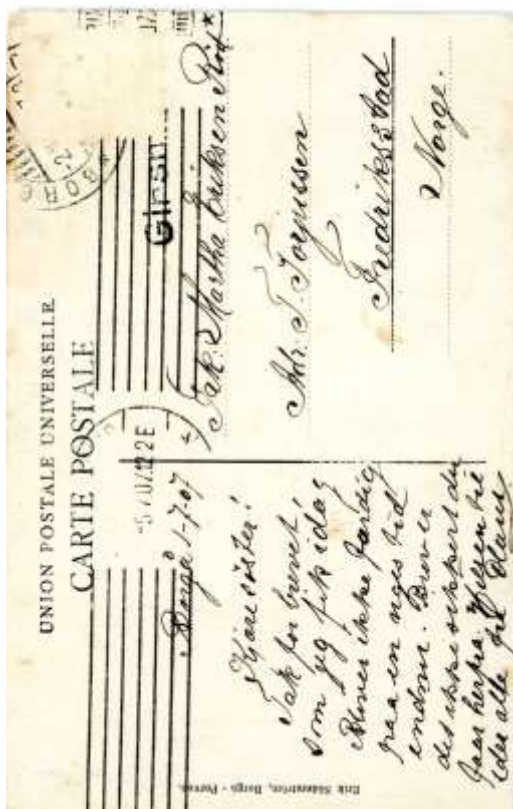 UNION POSTALE UNIVERSELLE
CARTE POSTALE
5/07.12 2 E
BOR
Borgå 1-7-07
Kjære söster!
Tak for brevet
som jeg fik idag
Bliver ikke færdig
paa en uges tid
endnu. Brev er
det ikke sikkert du
faar herfra. Hilsen til
eder alle fra Claus
Frk. Martha Eriksen Röd
Adr. T. Torgussen
Fredriksstad
Norge.
Erik Söderström, Borgå - Porvoo.